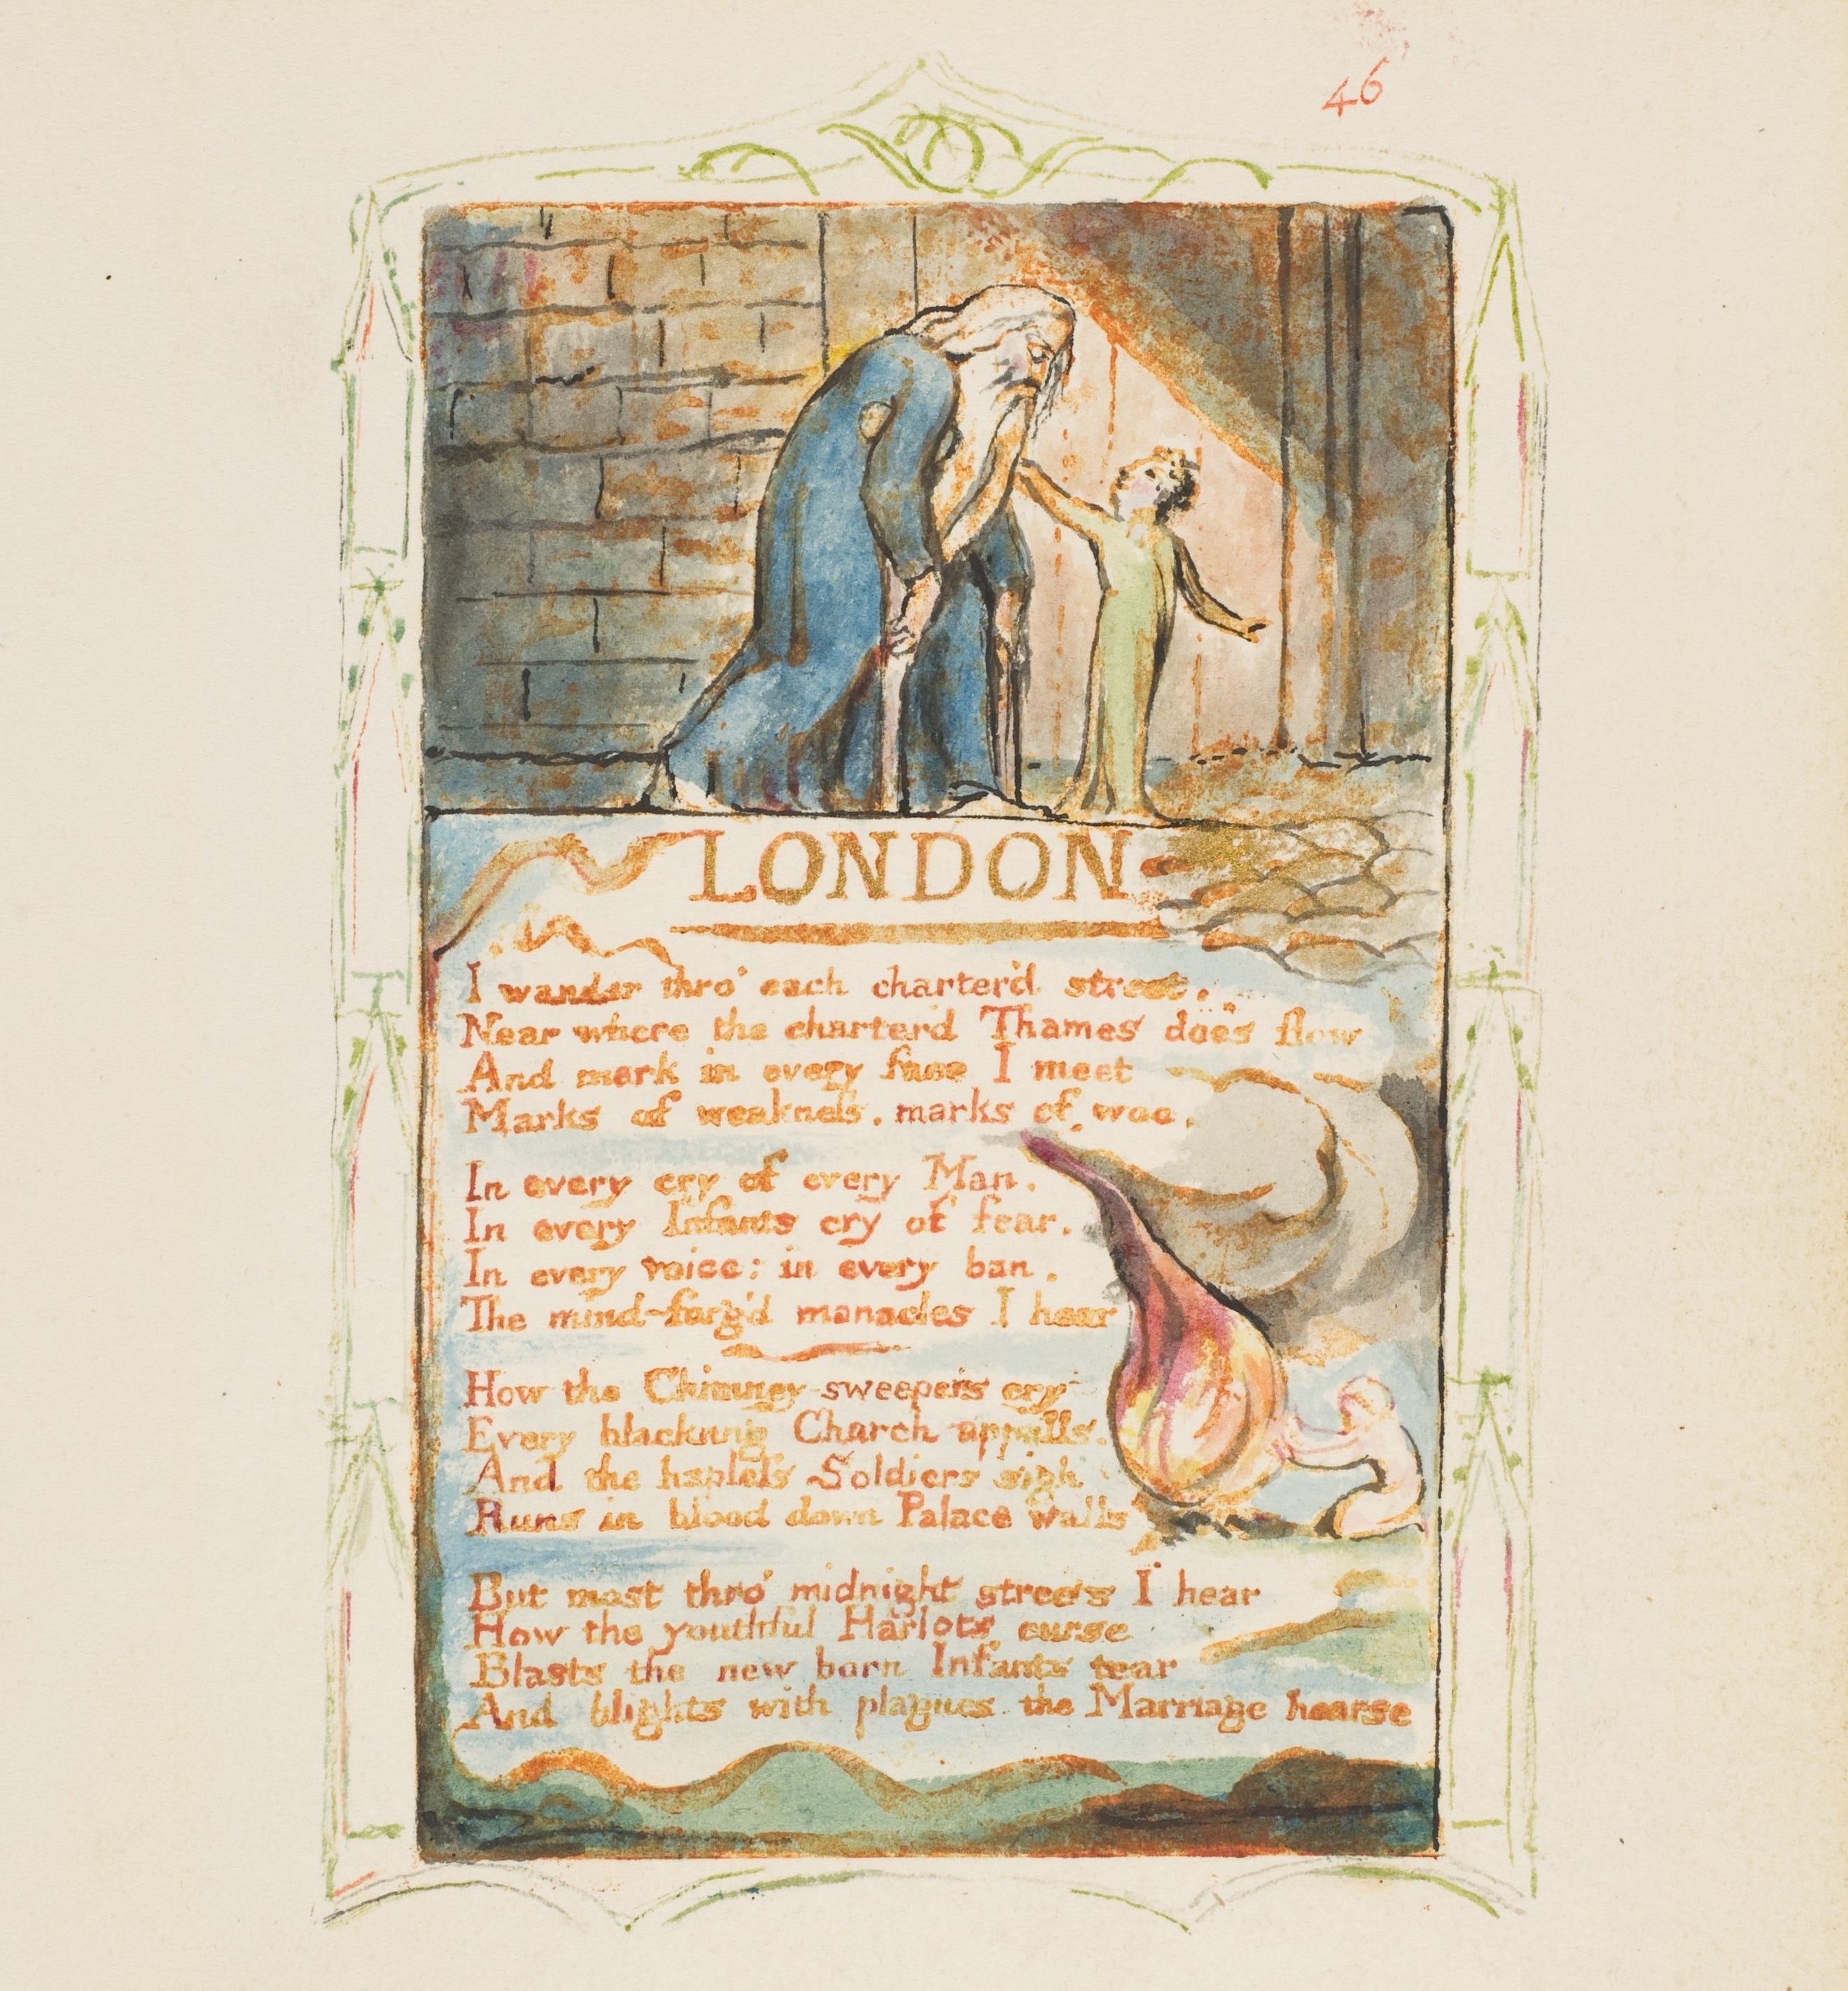 46
LONDON
I wander thro' each charter'd street,
Near where the charter'd Thames does flow
And mark in every face I meet
Marks of weakneſs, marks of woe.
In every cry of every Man,
In every Infants cry of fear,
In every voice; in every ban,
The mind-forg'd manacles I hear
How the Chimney-sweepers cry
Every blackning Church appalls,
And the hapleſs Soldiers sigh
Runs in blood down Palace walls
But most thro' midnight streets I hear
How the youthful Harlots curse
Blasts the new born Infants tear
And blights with plagues the Marriage hearse